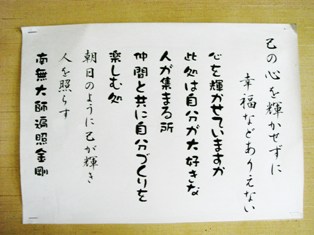 己の心を輝かせずに
幸福などありえない
心を輝かせていますか
此処は自分が大好きな
人が集まる所
仲間と共に自分づくりを
楽しむ処
朝日のように己が輝き
人を照らす
南無大師遍照金剛